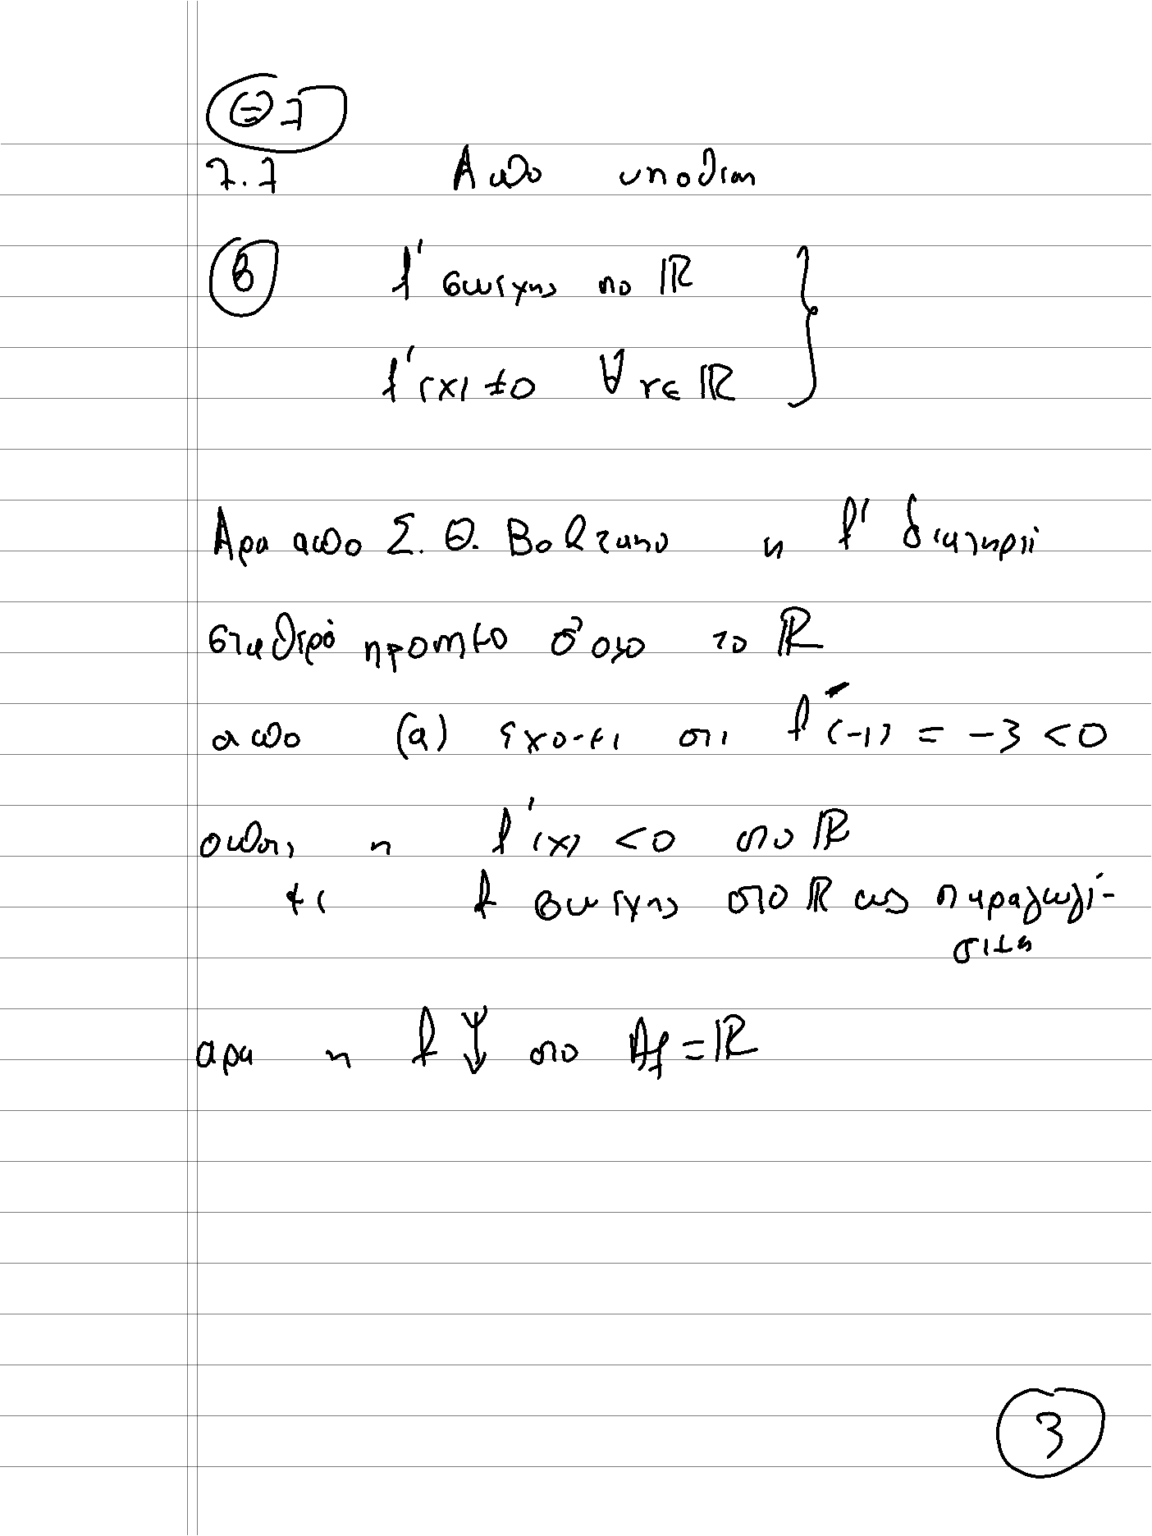 Θ 7
7.7 Από υποθεση
β f' συνεχης στο ℝ
f'(x) ≠ 0 ∀ x ∈ ℝ
Αρα απο Σ. Θ. Bolzano η f' διατηρεί
σταθερό προσημο σ' ολο το ℝ
απο (α) εχουμε οτι f'(-1) = -3 < 0
οποτε η f'(x) < 0 στο ℝ
με f συνεχης στο ℝ ως παραγωγί-
σιμη
αρα η f ↓ στο Af = ℝ
3